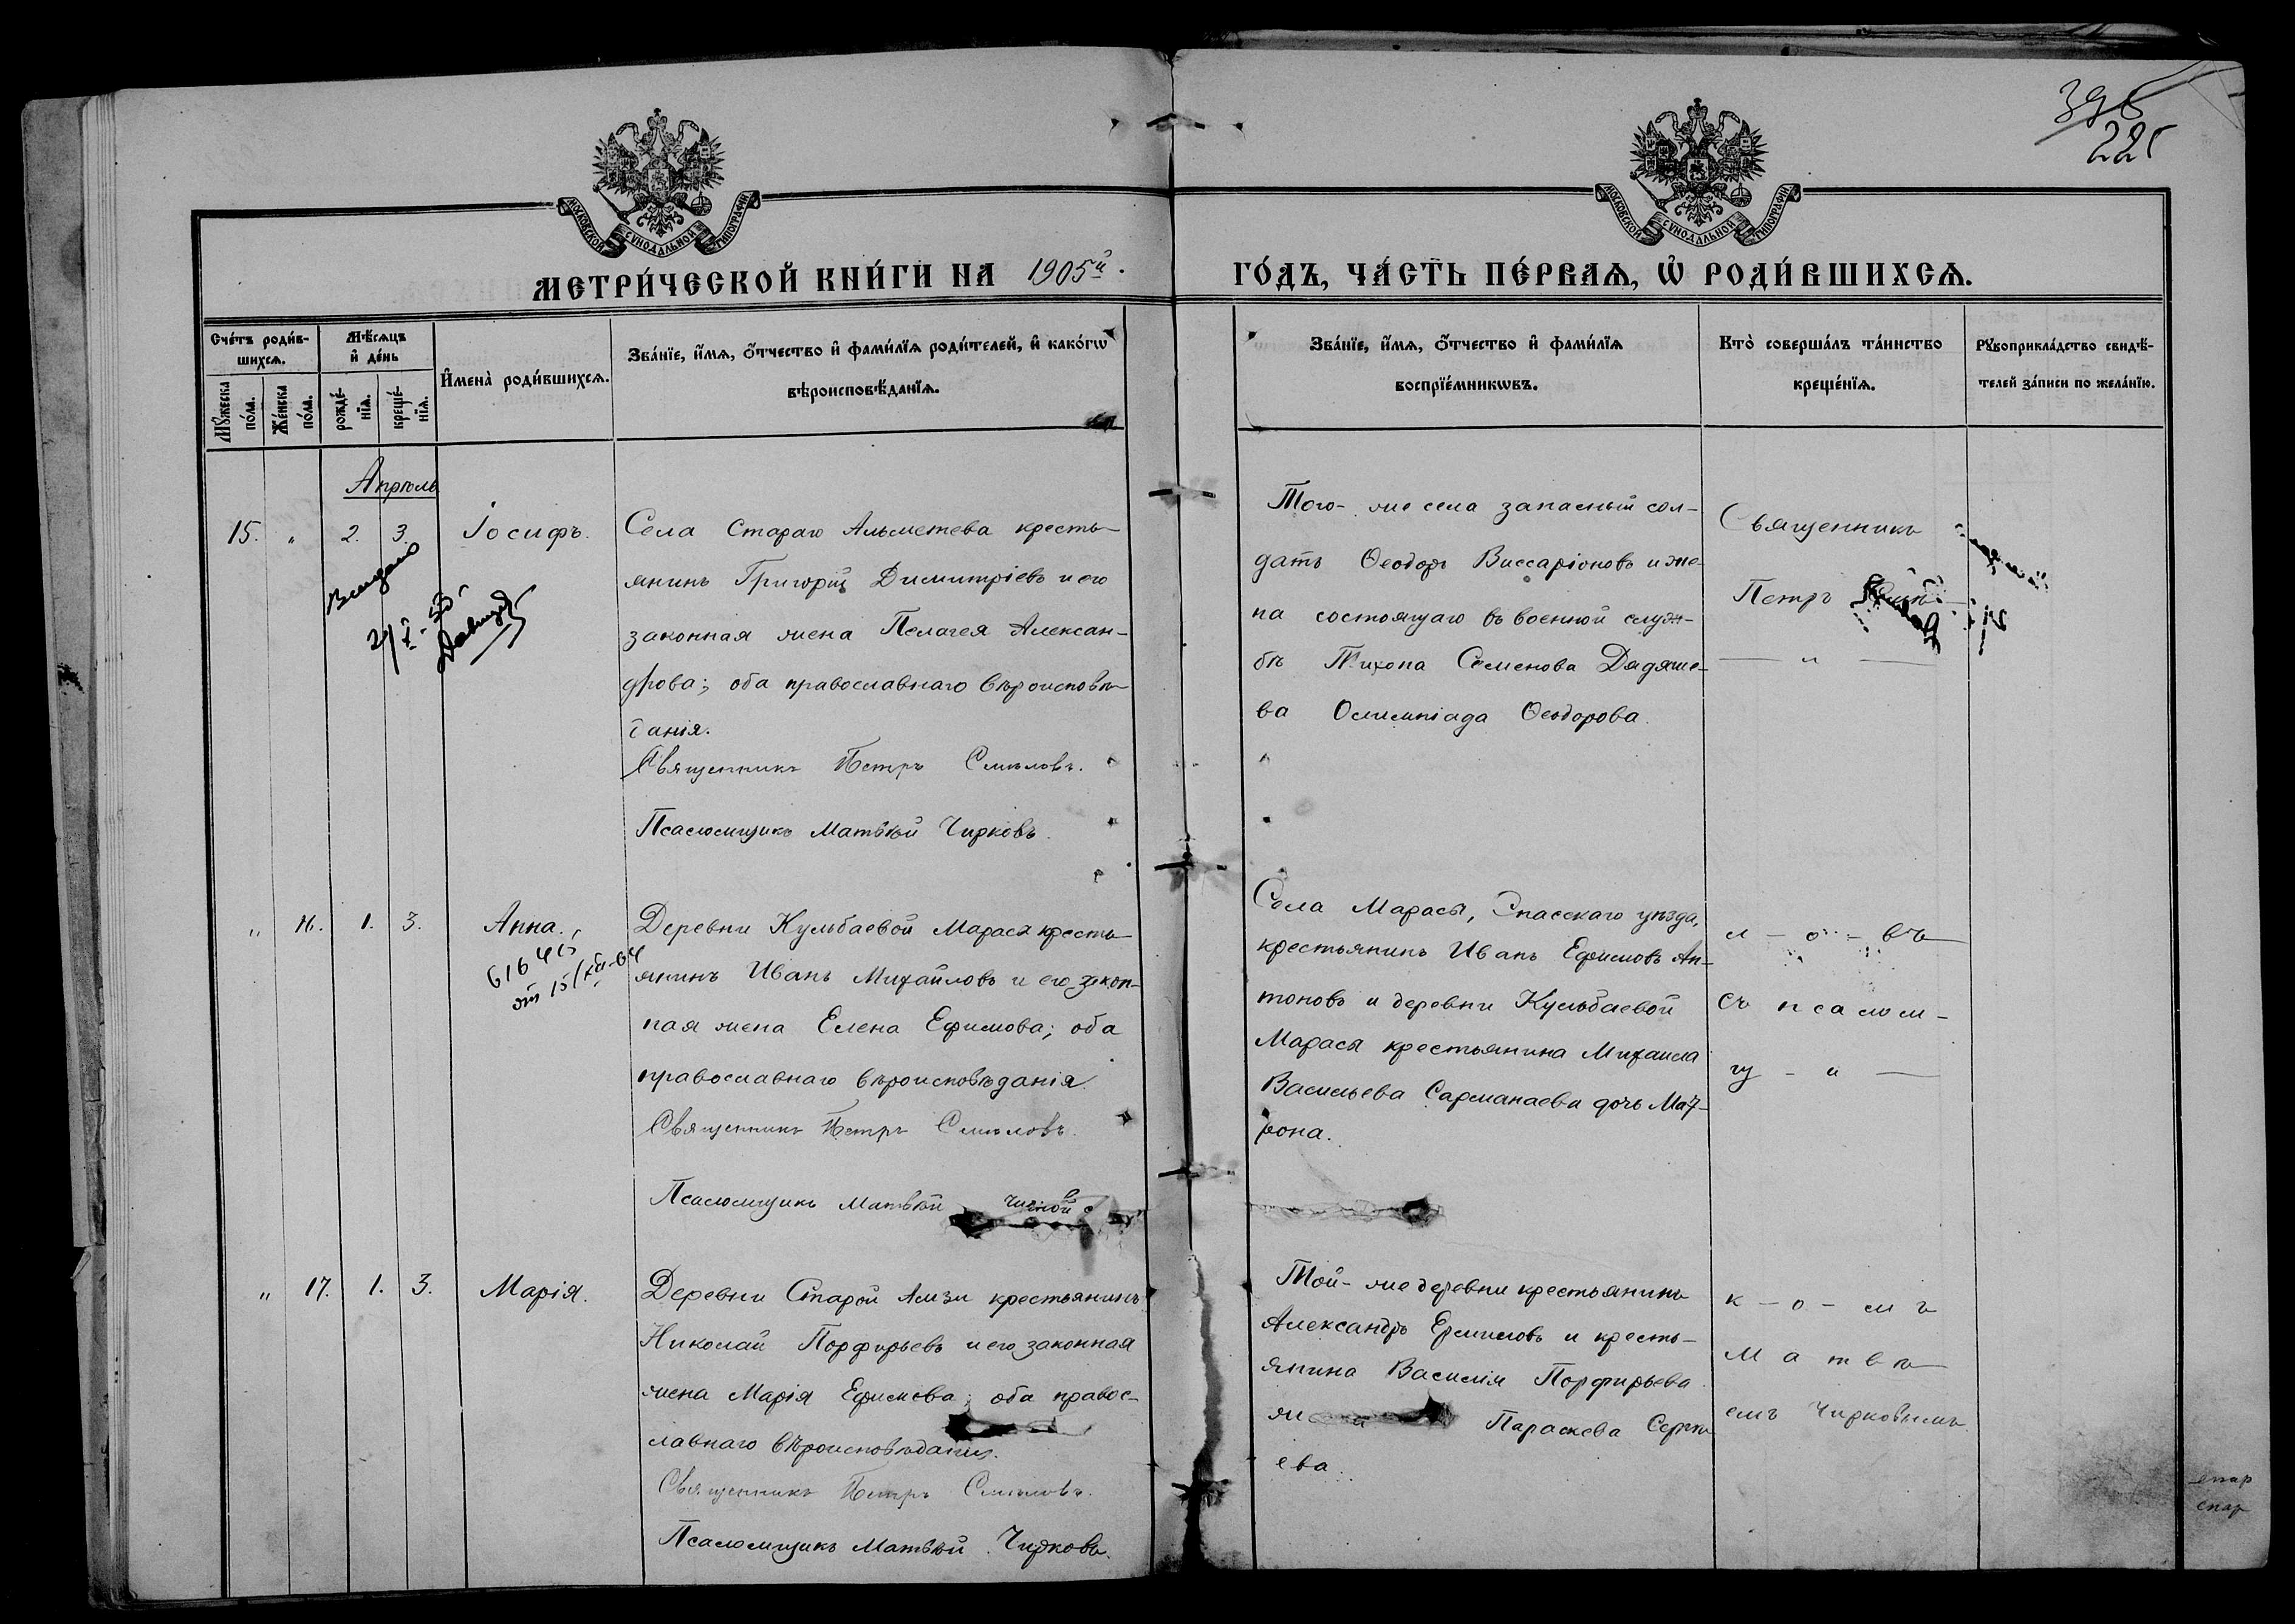 398
225
МОСКОВСКОЙ СѴНОДАЛЬНОЙ ТИПОГРАФІИ
МОСКОВСКОЙ СѴНОДАЛЬНОЙ ТИПОГРАФІИ
МЕТРИ́ЧЕСКОЙ КНИ́ГИ НА 1905й.
ГО́ДЪ, ЧА́СТЬ ПЕ́РВАѦ, Ѡ҆ РОДИ́ВШИХСѦ.
Сче́тъ роди́в-
шихсѧ.
Мꙋ́жеска по́ла.
Же́нска по́ла.
Мѣ́сѧцъ
и҆ де́нь
рожде́-
нїѧ.
креще́-
нїѧ.
И҆мена̀ роди́вшихсѧ.
Зва́нїе, и҆́мѧ, ѻ҆́тчество и҆ фами́лїѧ роди́телей, и҆ како́гѡ
вѣроисповѣ́данїѧ.
Зва́нїе, и҆́мѧ, ѻ҆́тчество и҆ фами́лїѧ
воспрїе́мникѡвъ.
Кто̀ соверша́лъ та́инство
креще́нїѧ.
Рꙋкоприкла́дство свидѣ́-
телей за́писи по жела́нїю.
Апрѣль
15. „ 2. 3. Іосифъ.
Села Стараго Альметева кресть-
янинъ Григорій Димитріевъ и его
законная жена Пелагея Алексан-
дрова; оба православнаго вѣроисповѣ-
данія.
Священникъ Петръ Смѣловъ.
Псаломщикъ Матвѣй Чирковъ.
Того-же села запасный сол-
датъ Ѳеодоръ Виссаріоновъ и же-
на состоящаго въ военной служ-
бѣ Тихона Семенова Дядяше-
ва Олимпіада Ѳеодорова.
Священникъ
Петръ
— „ —
„ 16. 1. 3. Анна.
61645
Деревни Кульбаевой Марасы кресть-
янинъ Иванъ Михайловъ и его закон-
ная жена Елена Ефимова; оба
православнаго вѣроисповѣданія.
Священникъ Петръ Смѣловъ.
Псаломщикъ Матвѣй
Села Марасы, Спасскаго уѣзда,
крестьянинъ Иванъ Ефимовъ Ан-
тоновъ и деревни Кульбаевой
Марасы крестьянина Михаила
Васильева Сарманаева дочь Мат-
рона.
л - о - въ
съ псалом-
щ - и —
„ 17. 1. 3. Марія.
Деревни Старой Амзи крестьянинъ
Николай Порфирьевъ и его законная
жена Марія Ефимова; оба правос-
лавнаго вѣроисповѣданія.
Священникъ Петръ Смѣловъ.
Псаломщикъ Матвѣй Чирковъ.
Той-же деревни крестьянинъ
Александръ Ермиловъ и кресть-
янина Василія Порфирьева
Параскева Сергѣ
ева.
к - о - мъ
Матвѣ-
емъ Чирковымъ.